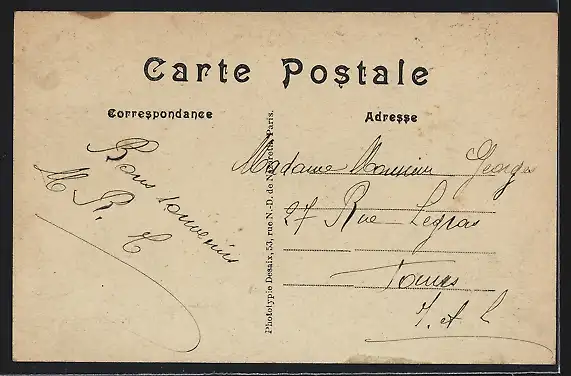 Carte Postale
Correspondance
Adresse
Bons souvenirs
M R. C
Phototypie Desaix, 53, rue N.-D. de Nazareth, Paris.
Madame Georges
27 Rue Legras
Tours
I. et L